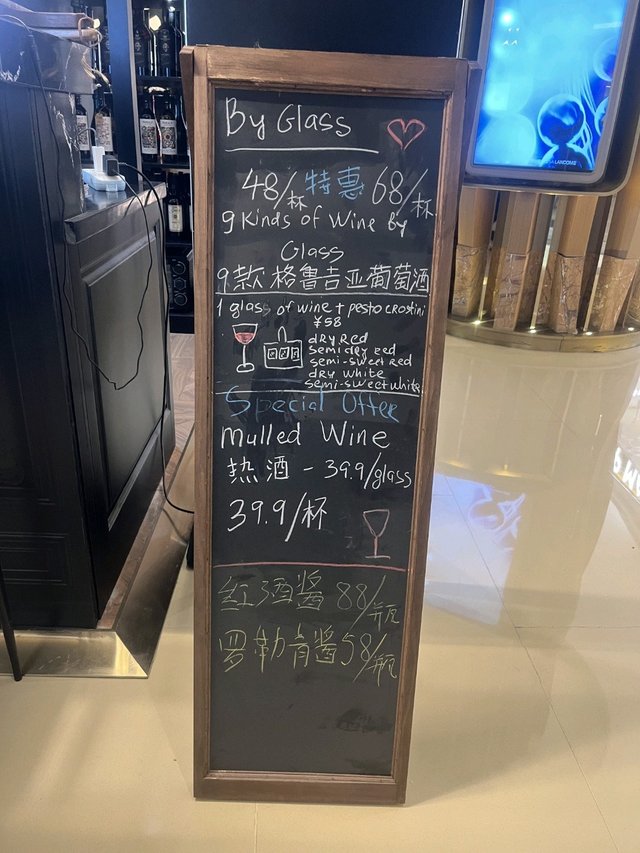 By Glass
48/杯 特惠 68/杯
9 Kinds of Wine By
Glass
9款格鲁吉亚葡萄酒
1 glass of wine + pesto crostini
¥58
dry Red
semi dry red
semi-sweet red
dry white
semi-sweet white
Special Offer
Mulled Wine
热酒 - 39.9/glass
39.9/杯
红酒酱 88/瓶
罗勒青酱 58/瓶
LANCOME